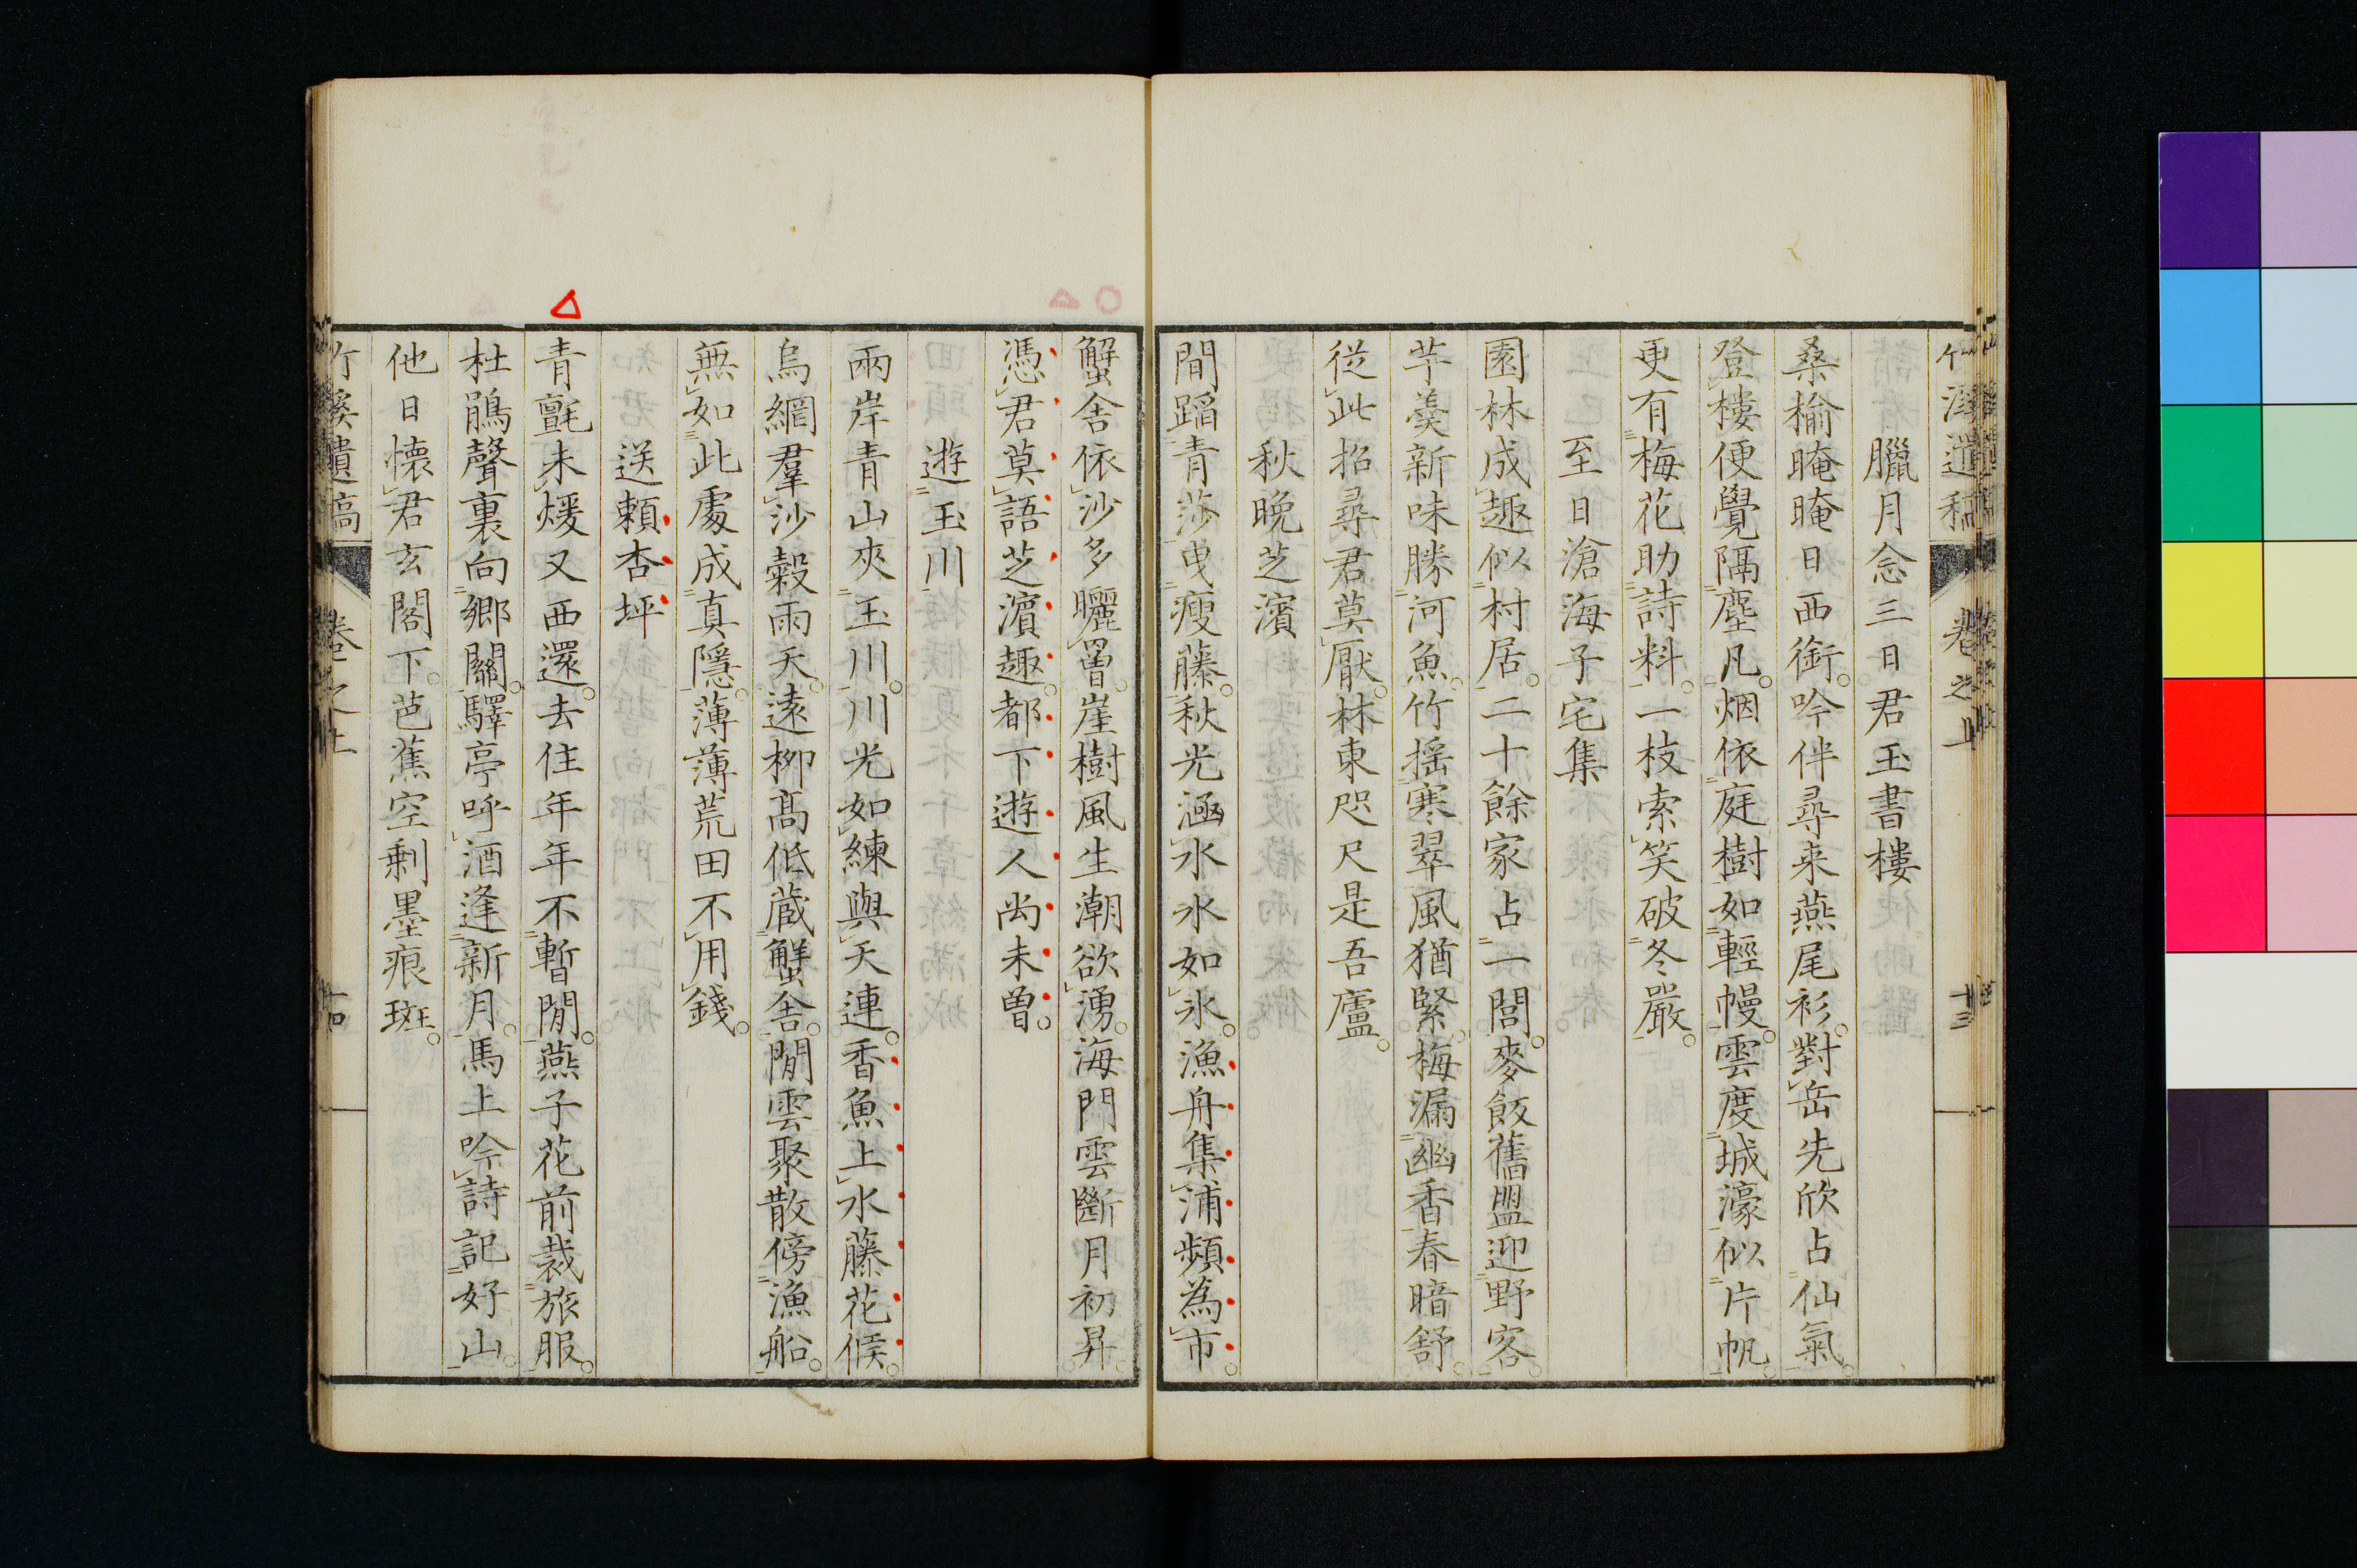 竹溪遺稿 卷之上 十三
臘月念三日君玉書樓
桑榆晻晻日西銜。吟伴尋来燕尾衫。對岳先欣占仙氣。
登樓便覺隔塵凡。烟依庭樹如輕幔。雲度城濠似片帆。
更有梅花助詩料。一枝索笑破冬嚴。
至日滄海子宅集
園林成趣似村居。二十餘家占一閭。麥飯舊盟迎野客。
芋羹新味勝河魚。竹揺寒翠風猶緊。梅漏幽香春暗舒。
從此招尋君莫厭。林東咫尺是吾廬。
秋晩芝濱
閒蹈青莎曳瘦藤。秋光涵水水如氷。漁舟集浦頻為市。
蟹舍依沙多曬罾。崖樹風生潮欲湧。海門雲斷月初昇。
憑君莫語芝濱趣。都下遊人尚未曽。
遊玉川
兩岸青山夾玉川。川光如練與天連。香魚上水藤花候。
烏網羣沙穀雨天。遠柳髙低蔵蟹舍。閒雲聚散傍漁船。
無如此處成真隱。薄薄荒田不用錢。
送頼杏坪
青氈未煖又西還。去住年年不暫閒。燕子花前裁旅服。
杜鵑聲裏向郷關。驛亭呼酒逢新月。馬上吟詩記好山。
他日懐君玄閣下。芭蕉空剰墨痕斑。
竹溪遺稿 卷之上